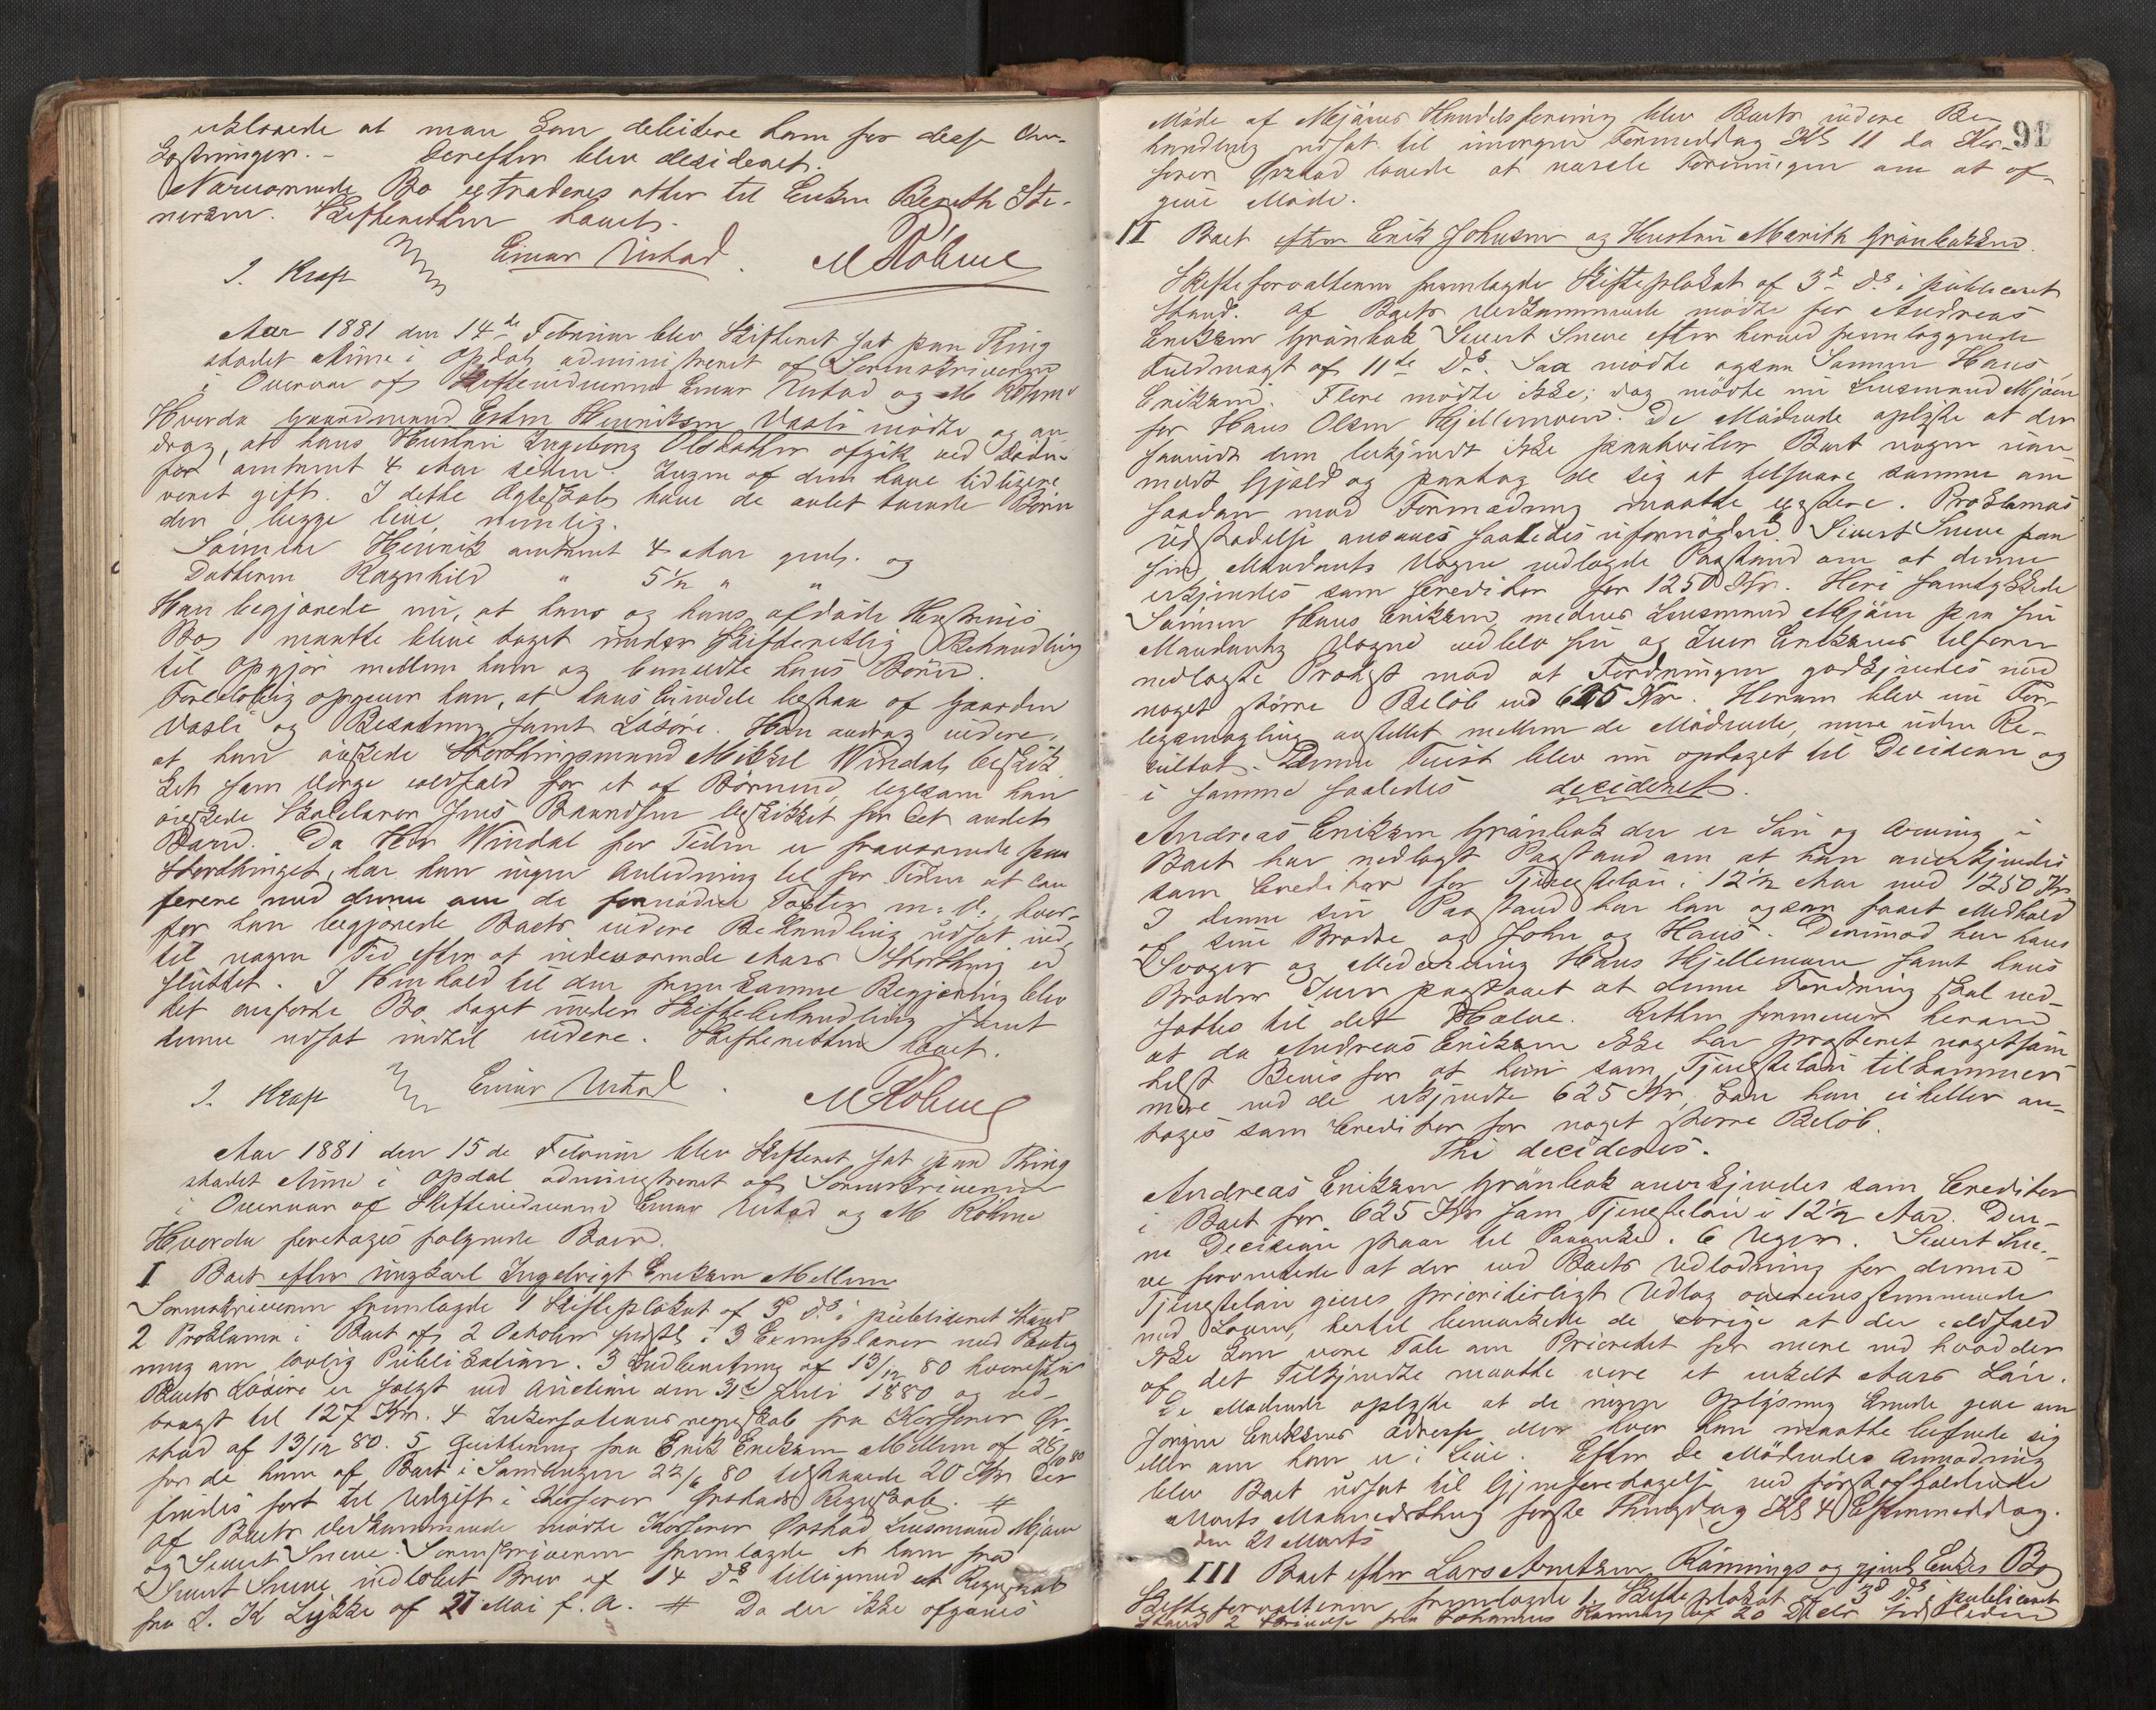 erklærede at man kan debitere ham for disse Om-
kostninger. – Derefter blev decideret.
Nærværende Bo extraderes atter til Enken Bereth Ste-
nersen. Skifteretten hævet.
J. Kraft Einar Urstad. M Röhme
Aar 1881 den 14de Februar blev Skifteret sat paa Thing
stedet Aune i Opdal administreret af Sorenskriveren
i Overvær af Skiftevidnerne Einar Urstad og M Röhme
Hvorda Gaardmand Esten Henriksen Vasli mødte og an
drog, at hans Hustru Ingeborg Olsdatter afgik ved Døden
for omtrent 4 Aar siden. Ingen af dem have tidligere
været gift. I dette Ægteskab have de avlet tvende Börn
der begge leve, nemlig.
Sönnen Henrik omtrent 4 Aar gml. og
Datteren Ragnhild " 5½ " "
Han begjærede nu, at hans og hans afdøde Hustrues
Bo maatte blive taget under Skifteretlig Behandling
til Opgjör mellem ham og benævnte hans Börn.
Foreløbig opgiver han, at hans Eiendele bestaa af Gaarden
Vasli og Besætning samt Løsöre. Han androg videre,
at han önskede Storthingsmand Mikkel Windal beskik
ket som Værge ialdfald for et af Børnene, ligesom han
önskede Skolelærer Jens Baardsen beskikket for det andet
Barn. Da Hr Windal for Tiden er fraværende paa
Storthinget, har han ingen Anledning til for Tiden at con
ferere med denne om de fornødne Taxter m: V:, hvor-
for han begjærede Boets videre Behandling udsat ind-
til nogen Tid efter at indeværende Aars Storthing er
sluttet. I Henhold til den fremkomne Begjæring blev
det anførte Bo taget under Skiftebehandling samt
denne udsat indtil videre. Skifteretten hævet.
J. Kraft Einar Urstad. M Röhme
Aar 1881 den 15de Februar blev Skifteret sat paa Thing
stedet Aune i Opdal administreret af Sorenskriveren
i Overvær af Skiftevidnerne Einar Urstad og M Röhme
Hvorda foretoges følgende Boer.
I Boet efter Ungkarl Ingebrigt Eriksen Mellem
Sorenskriveren fremlagde 1 Skifteplakat af 3 ds i publiceret Stand
2 Proklama i Boet af 2 Oktober sidstl i 3 Exemplarer med Paateg
ning om lovlig Publikation. 3 Indberetning af 13/12 80 hvorefter
Boets Løsöre er solgt ved Auction den 31te Juli 1880 og ud-
bragt til 127 Kr. 4 Inkassationsregnskab fra Kasserer Ör
stad af 13/12 80. 5 Quittering fra Erik Eriksen Mellem af 28/10 80
for de ham af Boet i Samlingen 22/6 80 tilstaaede 20 Kr der
findes fört til Udgift i Kasserer Örstads Regnskab. #
Af Boets Vedkommende mødte Kasserer Örstad, Lensmand Mjöen
og Sivert Sneve. Sorenskriveren fremlagde et ham fra
Sivert Sneve indløbet Brev af 14 ds tilligemed et Regnskab
fra L. K Lykke af 27 Mai f. A. # Da der ikke afgaves
91
Møde af Mjöens Handelsforening blev Boets videre Be-
handling udsat til imorgen Formiddag Kl 11 da Kas-
serer Örstad lovede at varsle Foreningen om at af-
give Møde.
II Boet efter Erik Johnsen og Hustru Marith Grönbakken.
Skifteforvalteren fremlagde Skifteplakat af 3de ds i publiceret
Stand. Af Boets Vedkommende mødte for Andreas
Eriksen Grönbak Sivert Sneve efter herved fremlæggende
Fuldmagt af 11te ds. Saa mødte ogsaa Sönnen Hans
Eriksen. Flere mødte ikke; dog mødte nu Lensmand Mjöen
for Hans Olsen Hjellemoen. De Mødende oplyste at der
saavidt dem bekjendt ikke paahviler Boet nogen uan-
meldt Gjæld og paatog de sig at tilsvare samme om
saadan mod Formodning maatte existere. Proklamas
Udstædelse ansaaes saaledes ufornøden. Sivert Sneve paa
sin Mandants Vegne nedlagde Paastand om at denne
erkjendes som Creditor for 1250 Kr. Heri samtykkede
Sönnen Hans Eriksen, medens Lensmand Mjöen paa sin
Mandants Vegne vedblev sin og Iver Eriksens tilforn
nedlagte Protest mod at Fordringen godkjendes med
noget större Beløb end 625 Kr. Herom blev nu For-
ligsmægling anstillet mellem de Mødende, men uden Re-
sultat. Denne Tvist blev nu optaget til Decision og
i samme saaledes decideret.
Andreas Eriksen Grönbak der er Sön og Arving i
Boet har nedlagt Paastand om at han anerkjendes
som Creditor for Tjenestelön i 12½ Aar med 1250 Kr
I denne sin Paastand har han ogsaa faaet Medhold
af sine Brødre og John og Hans. Derimod har hans
Svoger og Medarving Hans Hjellemoen samt hans
Broder Iver paastaaet at denne Fordring skal ned-
sættes til det Halve. Retten formener herom
at da Andreas Eriksen ikke har præsteret nogetsom
helst Bevis for at han som Tjenestelön tilkommer
mere end de erkjendte 625 Kr, kan han ei heller an-
tages som Creditor for noget større Beløb.
Thi decideres.
Andreas Eriksen Grönbak anerkjendes som Creditor
i Boet for 625 Kr som Tjenestelön i 12½ Aar. Den-
ne Decision staar til Paaanke i 6 Uger. Sivert Sne-
ve formente at der ved Boets Udlodning for denne
Tjenestelön gives prioriteret Udlæg overensstemmende
med Loven, hertil bemærkede de øvrige at der ialdfald
ikke kan være Tale om Prioritet for mere end hvad der
af det Tilkjendte maatte være et enkelt Aars Lön.
De Mødende oplyste at de ingen Oplysning kunde give om
Jörgen Eriksens Adresse eller hvor han maatte befinde sig
eller om han er i Live. Efter de Mødendes Anmodning
blev Boet udsat til Gjenforetagelse ved førstafholdende
Marts Maanedsthing første Thingdag Kl 4 Eftermiddag.
den 21 Marts
III Boet efter Lars Arntsen Rönnings og gjenl. Enkes Bo
Skifteforvalteren fremlagde 1. Skifteplakat af 3d ds i publiceret
Stand 2 Skrivelse fra Johannes Rönning af 20